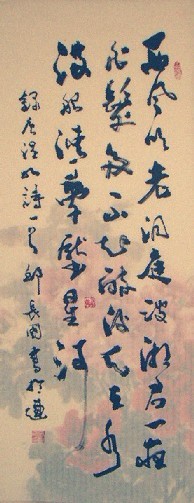 西风吹老洞庭波湘君一夜
白髮多不知醉後天在水
满船清夢壓星河
錄唐温如詩一首